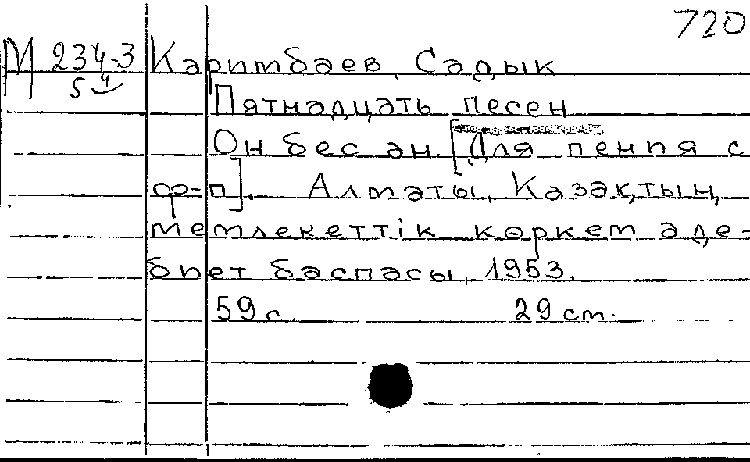 720
М 234-3 Каримбаев, Садык
5
Пятнадцать песен
Он бес ән [Для пения с
ф-п]. Алматы, Казақтың
мемлекеттік көркем әде-
биет баспасы, 1953.
59 с. 29 см.